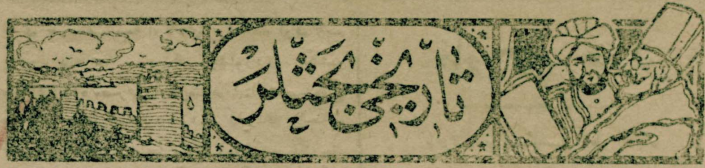 تاریخی بحثلر